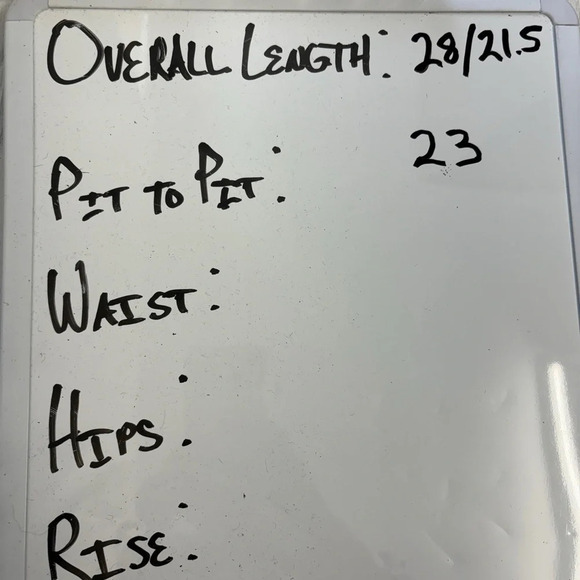 OVERALL LENGTH: 28/21.5
PIT TO PIT: 23
WAIST:
HIPS:
RISE: